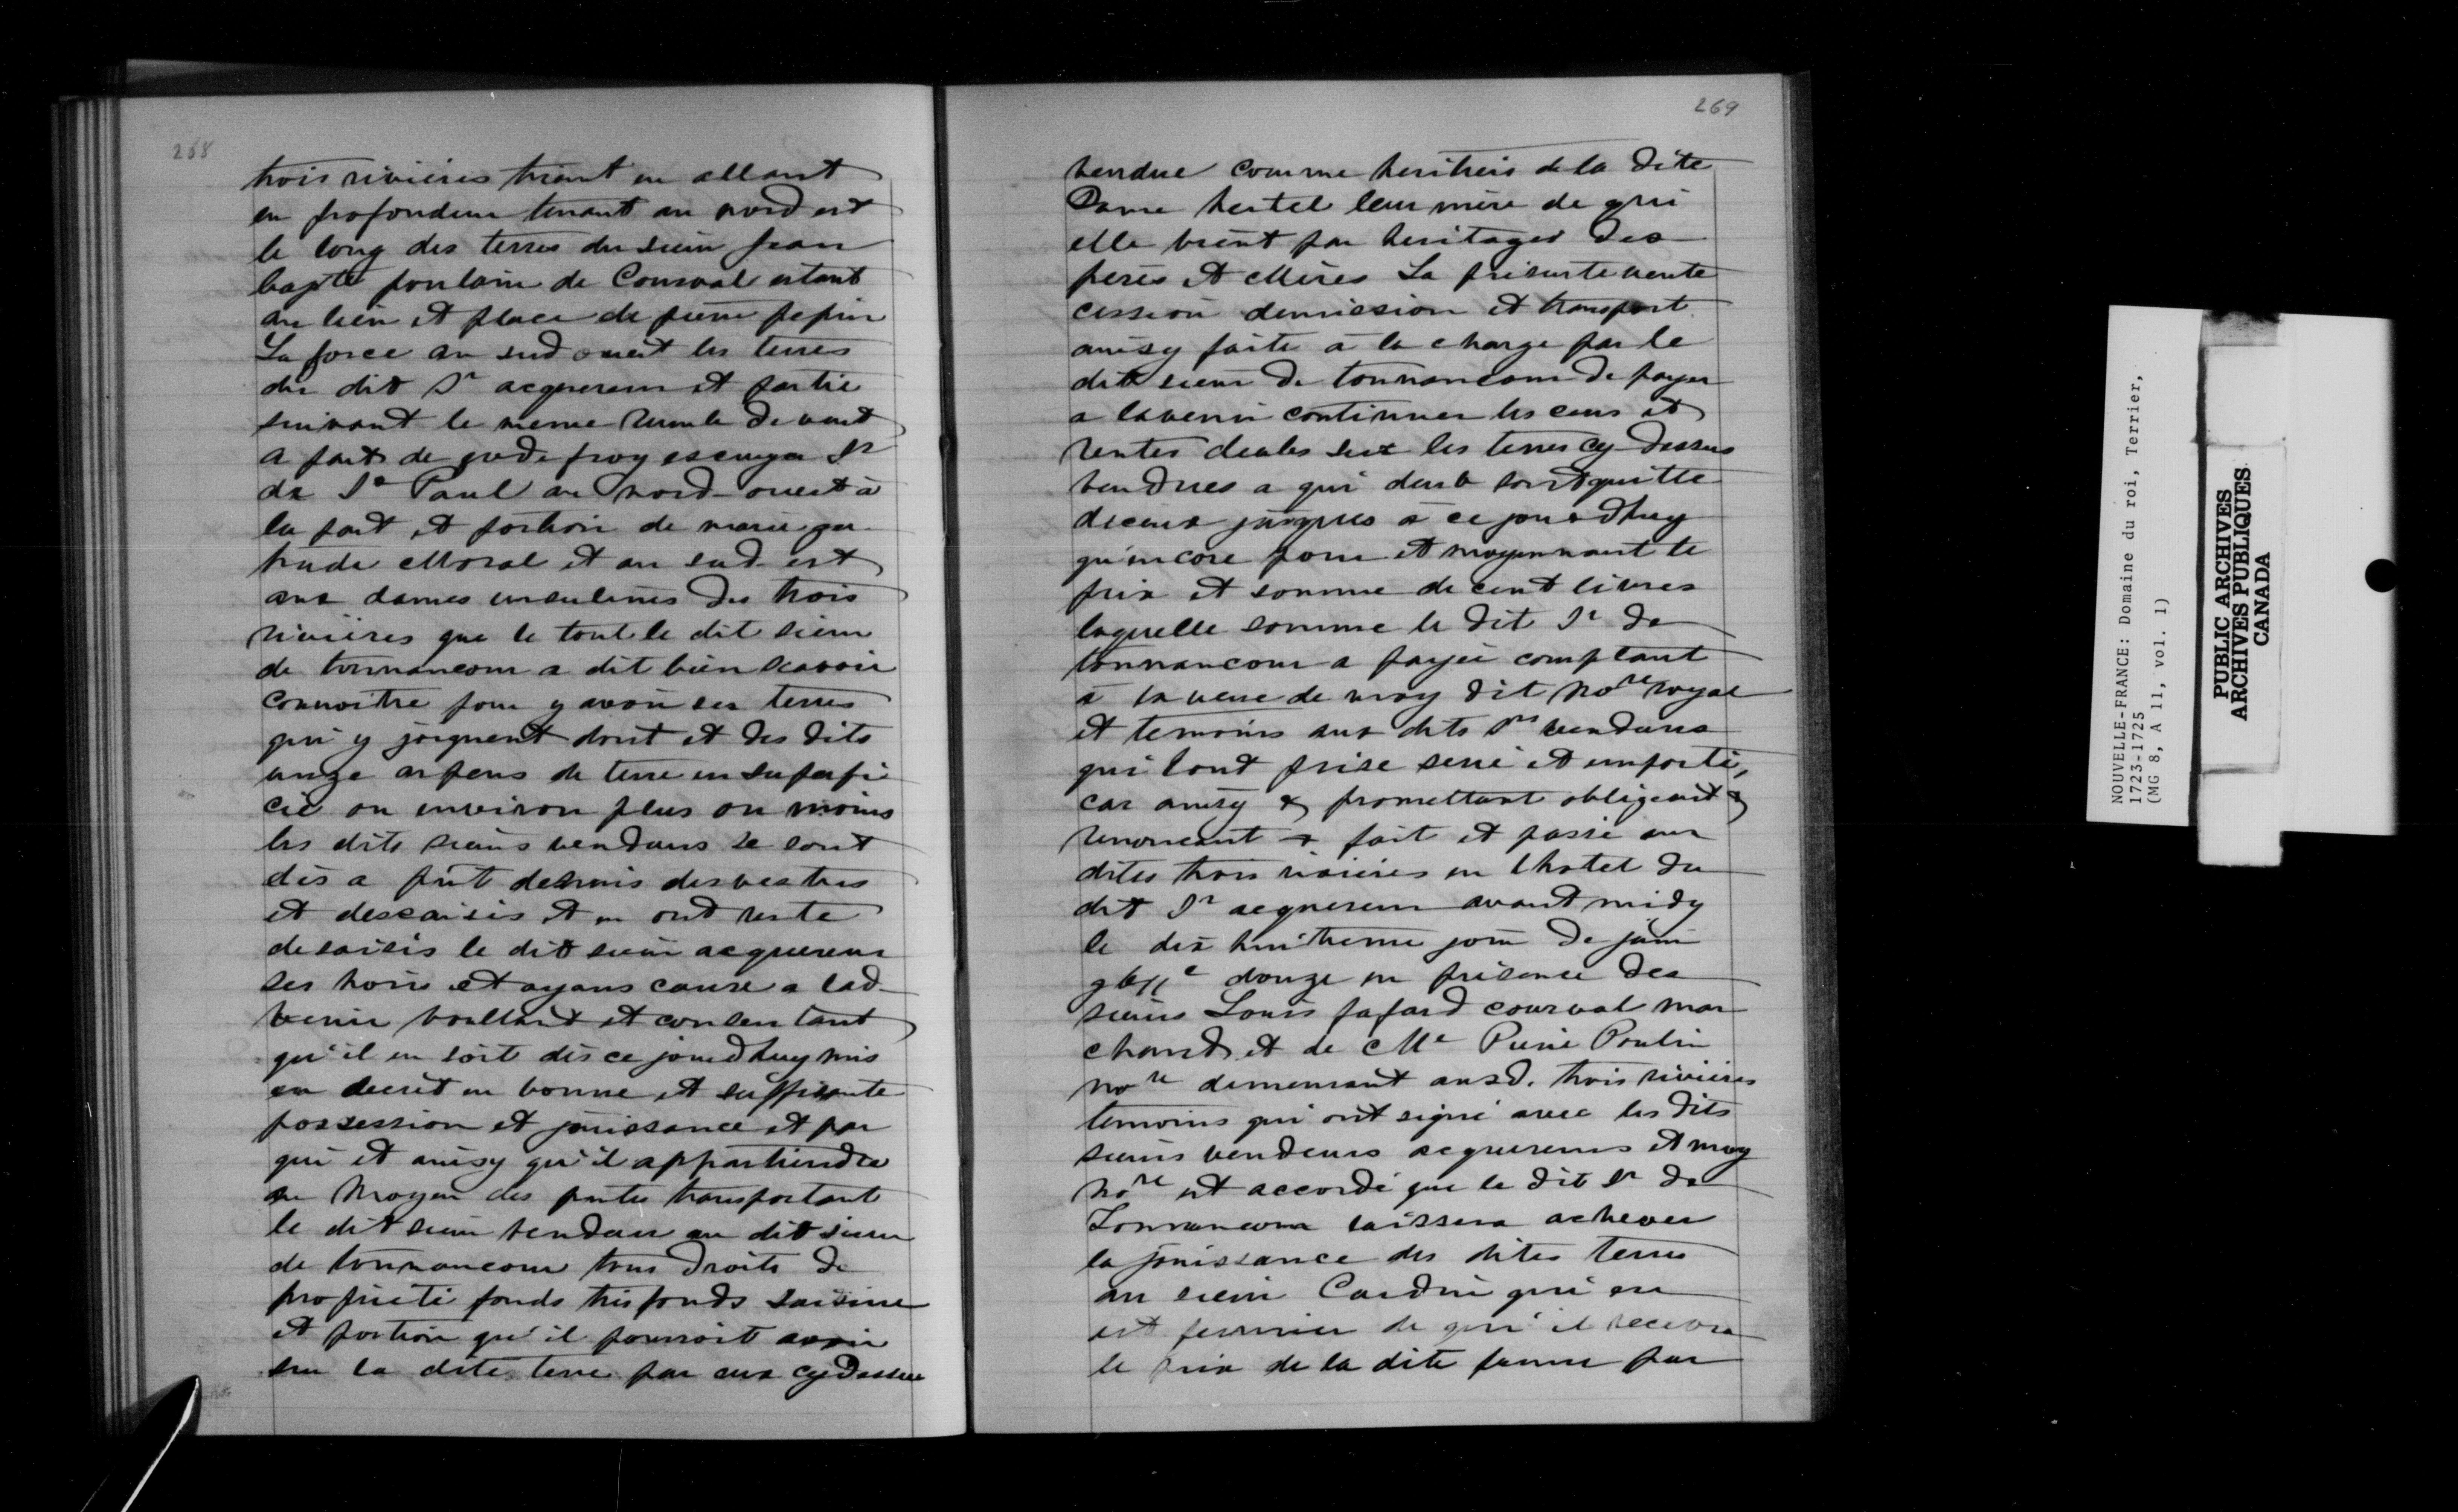 268
trois rivieres tirant en allant
en profondeur tenant au nord est
le long des terres du sieur Jean
bapte poulain de Courval estant
au lieu et place de pierre pepin
La force au sud ouest les terres
du dit Sr acquereur et partie
suivant le meme rumb de vent
a part de godefroy escuyer Sr
de St Paul au nord-ouest à
la part et portion de marie ger-
trude Moral et au sud est
aux dames ursulines des trois
rivieres que le tout le dit sieur
de tonnancour a dit bien scavoir
connoitre pour y avoir ses terres
qui y joignent dont et des dits
unze arpens de terre en superfi
cie ou environ plus ou moins
les dits sieurs vendans se sont
dès a pnt demis desvestus
et dessaisis et en ont
desaisis le dit sieur acquereur
ses hoirs et ayans cause a lad-
venir voullant et consentant
qu'il en soit dès ce jourdhuy mis
en bonne et suffisante
possession et jouissance et par
qui et ainsy qu'il appartiendra
au moyen des pntes transportant
le dit sieur vendeur au dit sieur
de tonnancour tous droits de
proprieté fonds tresfonds saisine
et portion qu'il pourroit avoir
sur la dite terre par eux cy dessus
269
vendue comme heritiers de la dite
Dame hertel leur mère de qui
elle vient par heritages des
peres et Mères La presente vente
cession demission et transport
ainsy faite a la charge par le
dit sieur de tonnancour de payer
a lavenir continuer les cens et
rentes deubs sur les terres cy-dessus
vendues a qui deub sont quitte
diceux jusques à ce jourdhuy
qu'encore pour et moyennant le
prix et somme de cent livres
laquelle somme le dit Sr de
tonnancour a payée comptant
à la veue de moy dit nore royal
et temoins aux dits Srs vendans
qui lont prise seré et emporté,
car ainsy & promettant obligeant &
renonceant & fait et passé aux
dites trois rivieres en lhotel du
dit Sr acquereur avant midy
le dix huitieme jour de juin
douze en présence des
sieurs Louis fafard courval mar
chand et de Me Pierre Poulin
nore demeurant ausd. trois rivieres
temoins qui ont signé avec les dits
sieurs vendeurs acquereurs et moy
nore est accordé que le dit Sr de
Tonnancour laissera achever
la jouissance des dites terres
au sieur Cardin qui en
est fermier de qui il recevra
le prix de la dite ferme par
NOUVELLE-FRANCE: Domaine du roi, Terrier,
1723-1725
(MG 8, A 11, vol. 1)
PUBLIC ARCHIVES
ARCHIVES PUBLIQUES
CANADA